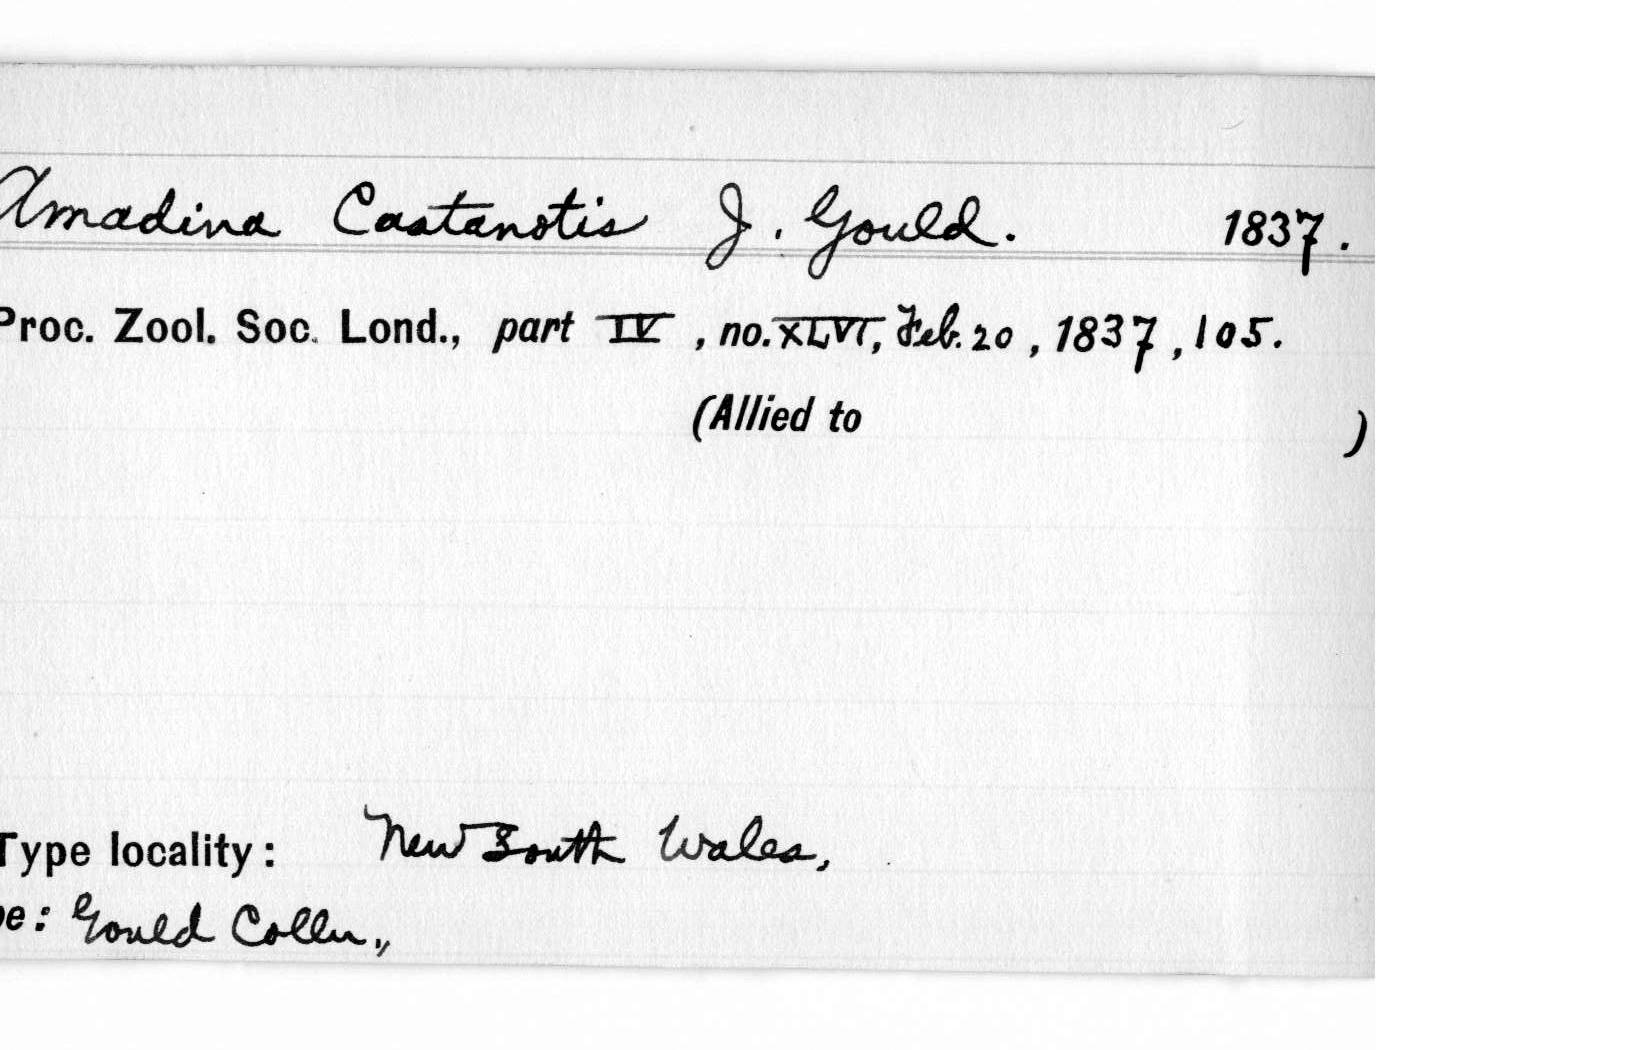 Amadina Castanotis J. Gould. 1837.
Proc. Zool. Soc. Lond., part IV, no. XLVI, Feb. 20, 1837, 105.
(Allied to )
Type locality: New South Wales,
pe: Gould Colln.,